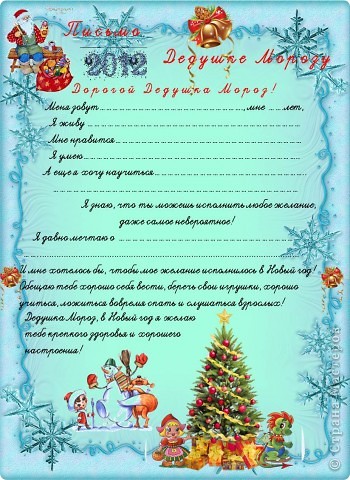 Письмо
2012
Дедушке Морозу
Дорогой Дедушка Мороз!
Меня зовут..............................,мне......лет,
Я живу ..............................
Мне нравится..............................
Я умею..............................
А еще я хочу научиться..............................
..............................
Я знаю, что ты можешь исполнить любое желание,
даже самое невероятное!
Я давно мечтаю о ..............................
..............................
И мне хотелось бы, чтобы мое желание исполнилось в Новый год!
Обещаю тебе хорошо себя вести, беречь свои игрушки, хорошо
учиться, ложиться вовремя спать и слушаться взрослых!
Дедушка Мороз, в Новый год я желаю
тебе крепкого здоровья и хорошего
настроения!
© Страна Мастеров